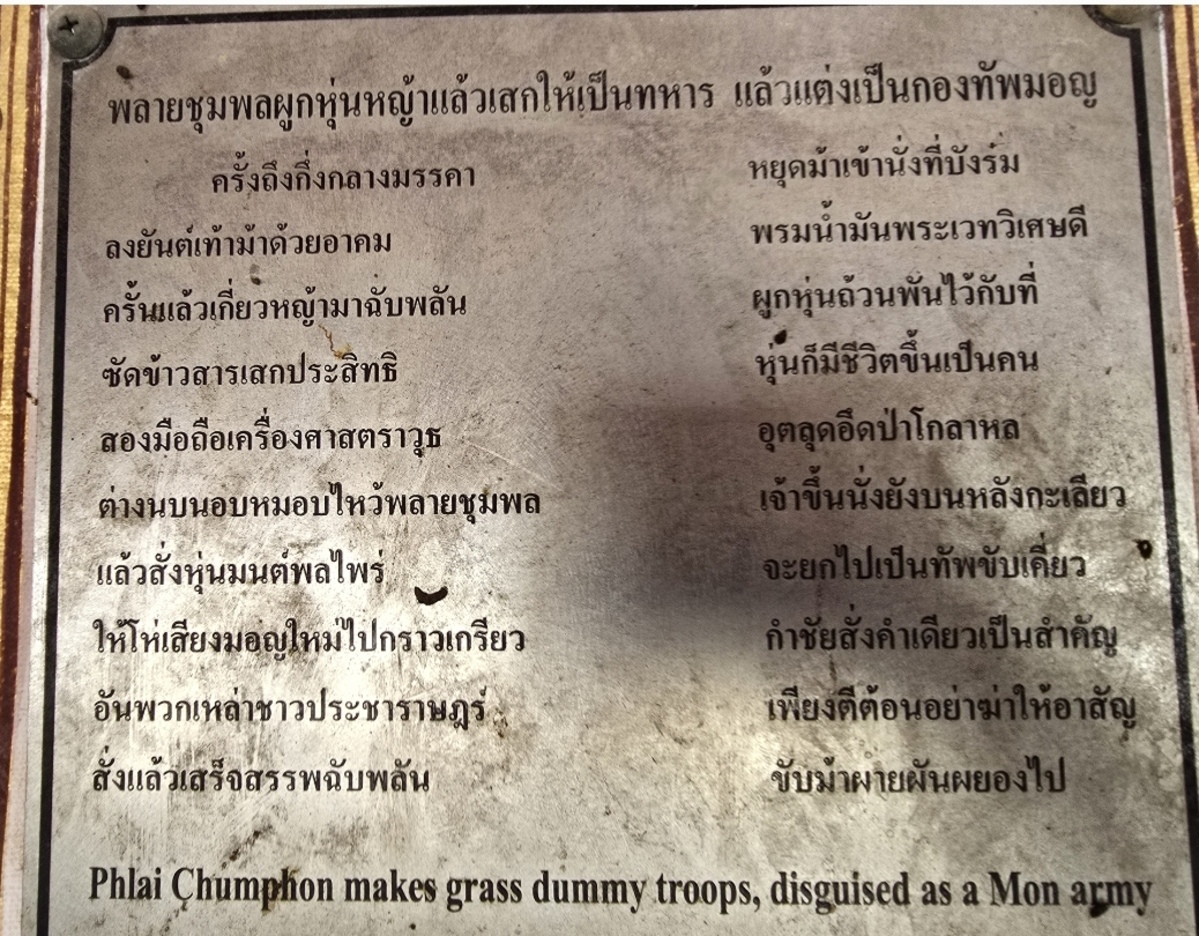 พลายชุมพลผูกหุ่นหญ้าแล้วเสกให้เป็นทหาร แล้วแต่งเป็นกองทัพมอญ
ครั้งถึงกึ่งกลางมรรคา หยุดม้าเข้านั่งที่บังร่ม
ลงยันต์เท้าม้าด้วยอาคม พรมน้ำมันพระเวทวิเศษดี
ครั้นแล้วเกี่ยวหญ้ามาฉับพลัน ผูกหุ่นถ้วนพันไว้กับที่
ซัดข้าวสารเสกประสิทธิ หุ่นก็มีชีวิตขึ้นเป็นคน
สองมือถือเครื่องศาสตราวุธ อุตลุดอึดป่าโกลาหล
ต่างนบนอบหมอบไหว้พลายชุมพล เจ้าขึ้นนั่งยังบนหลังกะเลียว
แล้วสั่งหุ่นมนต์พลไพร่ จะยกไปเป็นทัพขับเคี่ยว
ให้โห่เสียงมอญใหม่ไปกราวเกรียว กำชัยสั่งคำเดียวเป็นสำคัญ
อันพวกเหล่าชาวประชาราษฎร์ เพียงตีต้อนอย่าฆ่าให้อาสัญ
สั่งแล้วเสร็จสรรพฉับพลัน ขับม้าผายผันผยองไป
Phlai Chumphon makes grass dummy troops, disguised as a Mon army